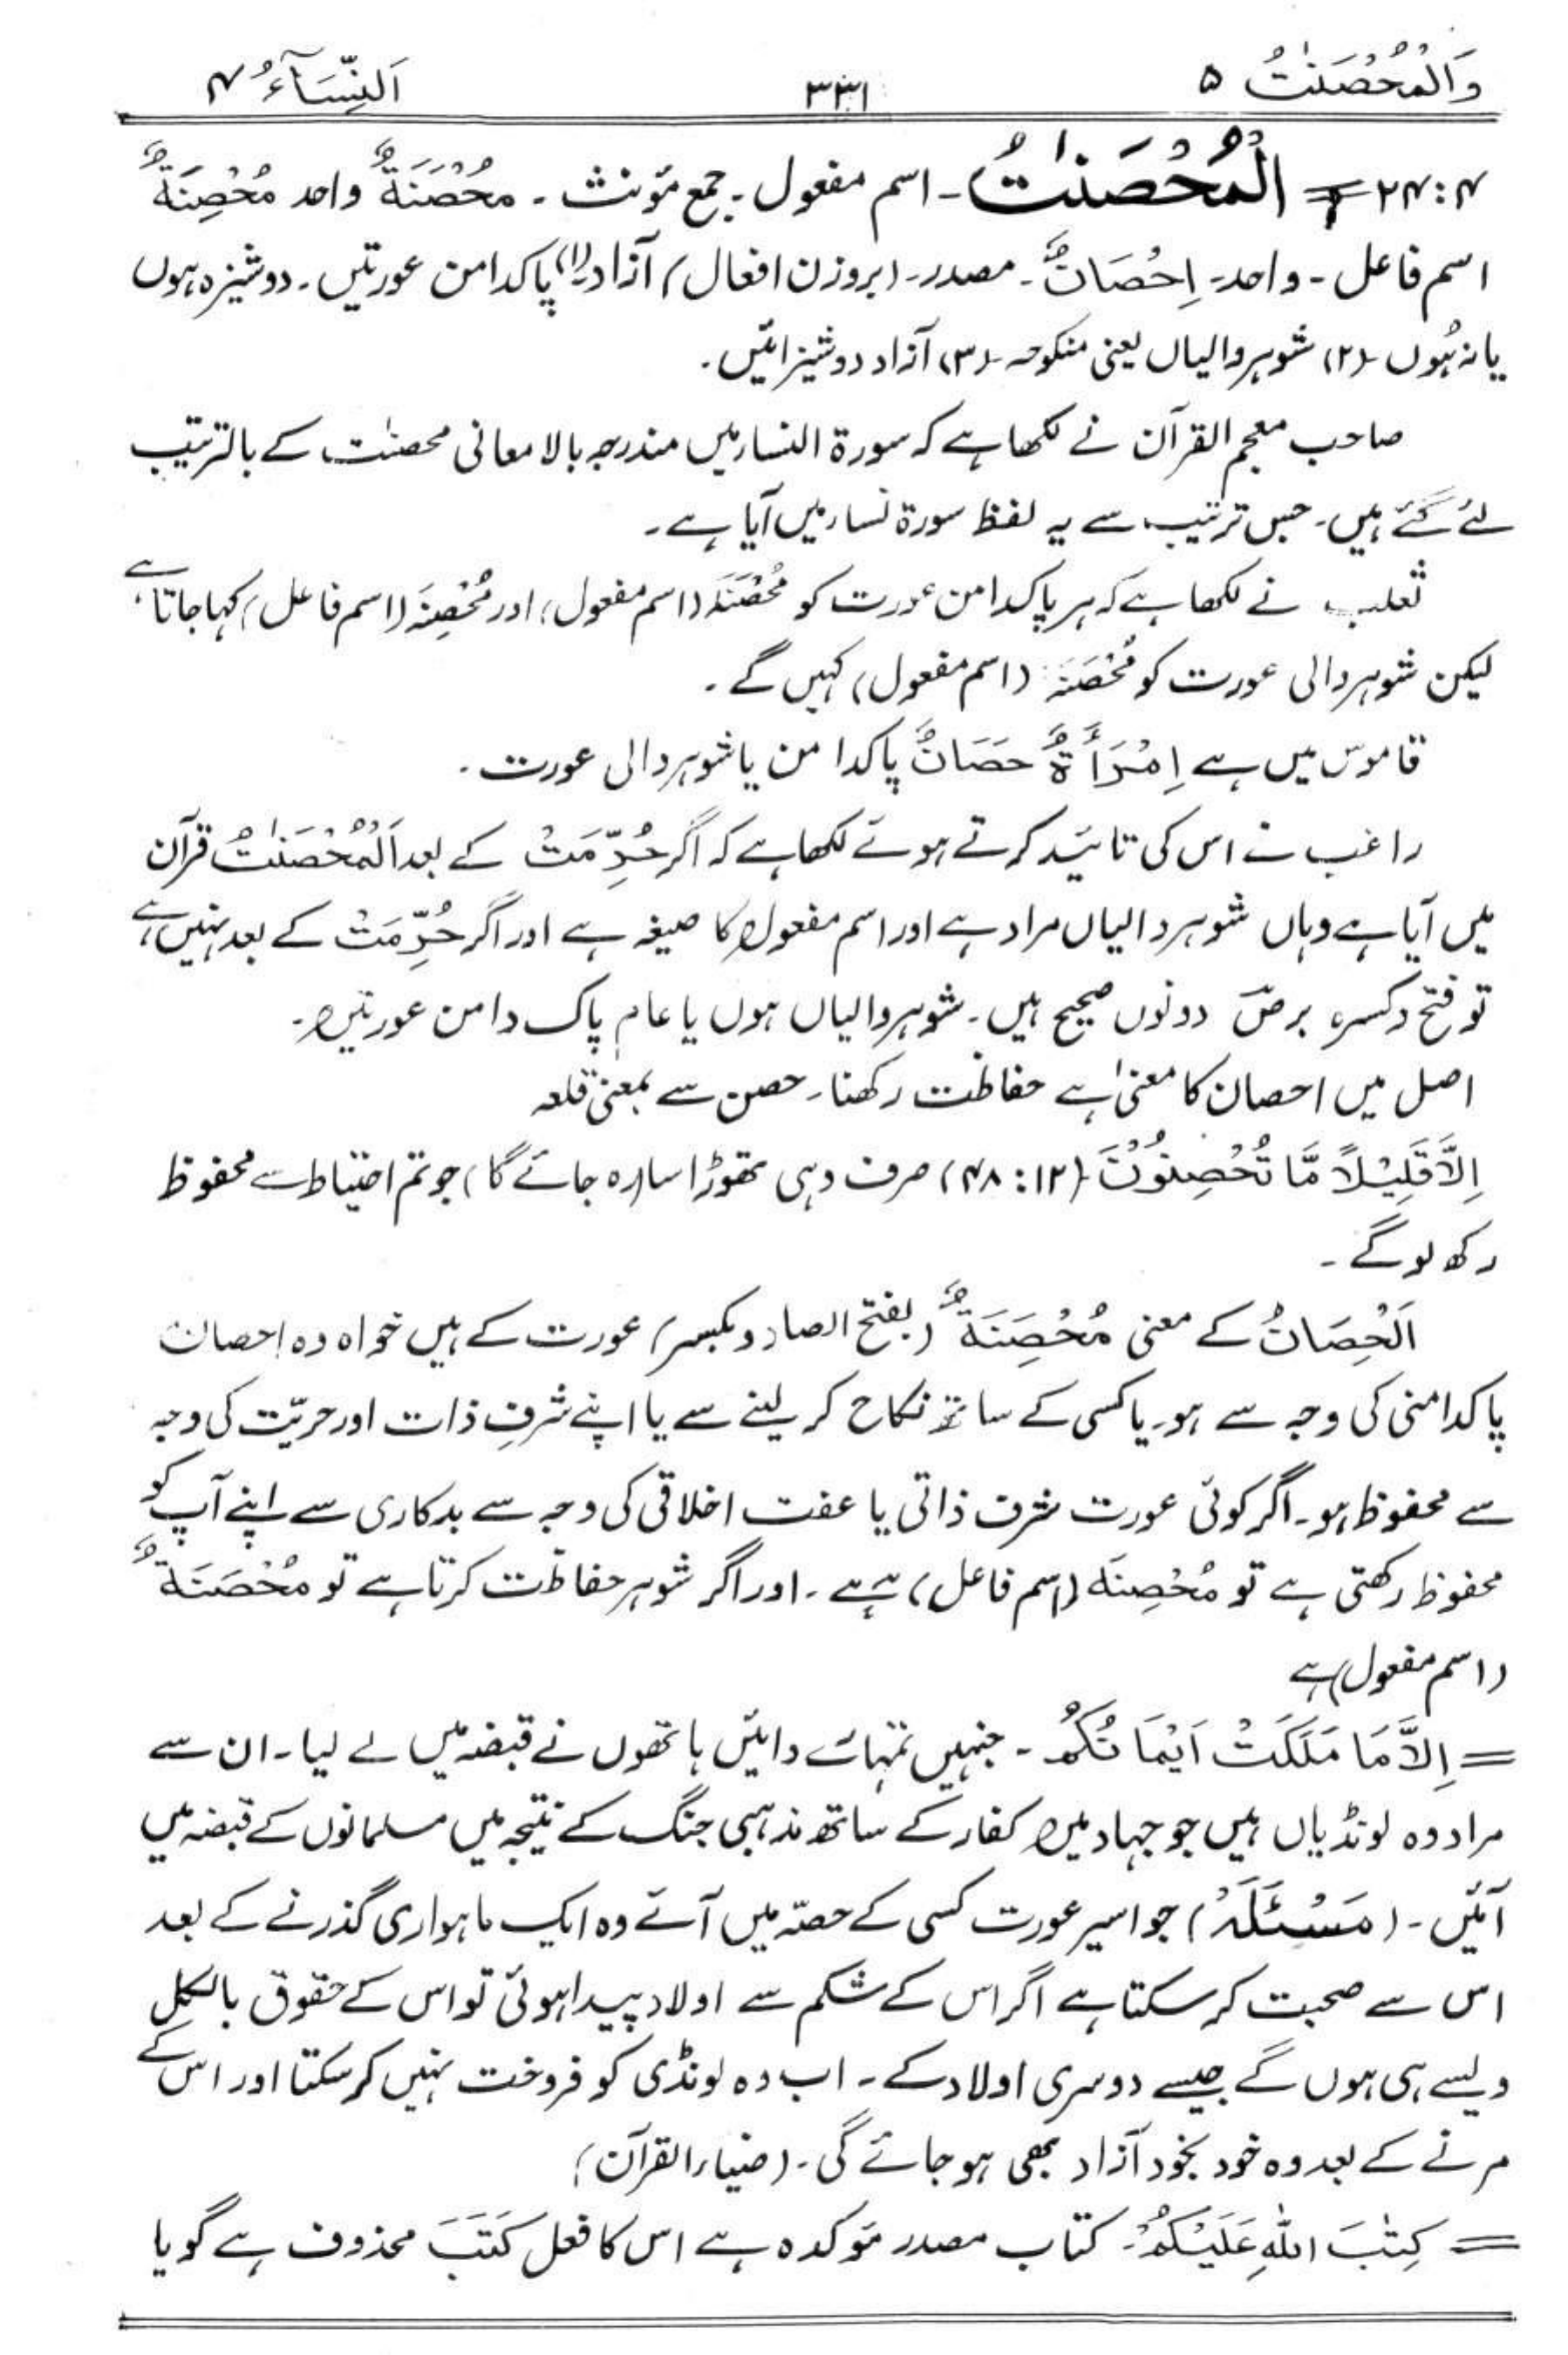 وَالْمُحْصَنٰتُ ۵
۳۳۱
اَلنِّسَآءُ ۴
۴:۲۴ = اَلْمُحْصَنٰتُ۔ اسم مفعول۔ جمع مؤنث۔ مُحْصَنَةٌ واحد مُحْصِنَةٌ
اسم فاعل۔ واحد۔ اِحْصَانٌ۔ مصدر۔ (بروزن افعال) آزاد۔ (۱) پاکدامن عورتیں۔ دوشیزہ ہوں
یا نہ ہُوں (۲) شوہر والیاں یعنی منکوحہ (۳) آزاد دوشیزائیں۔
صاحب معجم القرآن نے لکھا ہے کہ سورۃ النساء میں مندرجہ بالا معانی محصنٰت کے بالترتیب
لئے گئے ہیں۔ جس ترتیب سے یہ لفظ سورۃ نساء میں آیا ہے۔
ثعلب نے لکھا ہے کہ ہر پاکدامن عورت کو مُحْصَنَہ (اسم مفعول) اور مُحْصِنَہ (اسم فاعل) کہا جاتا ہے
لیکن شوہر والی عورت کو مُحْصَنَہ (اسم مفعول) کہیں گے۔
قاموس میں ہے اِمْرَأَةٌ حَصَانٌ پاکدامن یا شوہر والی عورت۔
راغب نے اس کی تائید کرتے ہوئے لکھا ہے کہ اگر حُرِّمَتْ کے بعد اَلْمُحْصَنٰتُ قرآن
میں آیا ہے وہاں شوہر والیاں مراد ہے اور اسم مفعول کا صیغہ ہے اور اگر حُرِّمَتْ کے بعد نہیں ہے
تو فتح و کسرہ برصؔ دونوں صحیح ہیں۔ شوہر والیاں ہوں یا عام پاک دامن عورتیں۔
اصل میں احصان کا معنیٰ ہے حفاظت رکھنا۔ حصن سے بمعنی قلعہ
اِلَّا قَلِيْلًا مَّا تُحْصِنُوْنَ (۱۲:۴۸) صرف وہی تھوڑا سا (رہ جائے گا) جو تم احتیاط سے محفوظ
رکھ لو گے۔
اَلْحِصَانُ کے معنی مُحْصِنَةٌ (بفتح الصاد و بکسر) عورت کے ہیں خواہ وہ احصان
پاکدامنی کی وجہ سے ہو۔ یا کسی کے ساتھ نکاح کر لینے سے یا اپنے شرفِ ذات اور حریّت کی وجہ
سے محفوظ ہو۔ اگر کوئی عورت شرف ذاتی یا عفت اخلاقی کی وجہ سے بدکاری سے اپنے آپ کو
محفوظ رکھتی ہے تو مُحْصِنَہ (اسم فاعل) ہے۔ اور اگر شوہر حفاظت کرتا ہے تو مُحْصَنَةٌ
(اسم مفعول) ہے
= اِلَّا مَا مَلَكَتْ اَيْمَانُكُمْ۔ جنہیں تمہارے دائیں ہاتھوں نے قبضہ میں لے لیا۔ ان سے
مراد وہ لونڈیاں ہیں جو جہاد میں کفار کے ساتھ مذہبی جنگ کے نتیجہ میں مسلمانوں کے قبضہ میں
آئیں۔ (مَسْئَلَہْ) جو اسیر عورت کسی کے حصّہ میں آئے وہ ایک ماہواری گذرنے کے بعد
اس سے صحبت کر سکتا ہے اگر اس کے شکم سے اولاد پیدا ہوئی تو اس کے حقوق بالکل
ویسے ہی ہوں گے جیسے دوسری اولاد کے۔ اب وہ لونڈی کو فروخت نہیں کر سکتا اور اس کے
مرنے کے بعد وہ خود بخود آزاد بھی ہو جائے گی۔ (ضیاء القرآن)
= كِتٰبَ اللّٰهِ عَلَيْكُمْ۔ کتاب مصدر مؤکدہ ہے اس کا فعل كَتَبَ محذوف ہے گویا